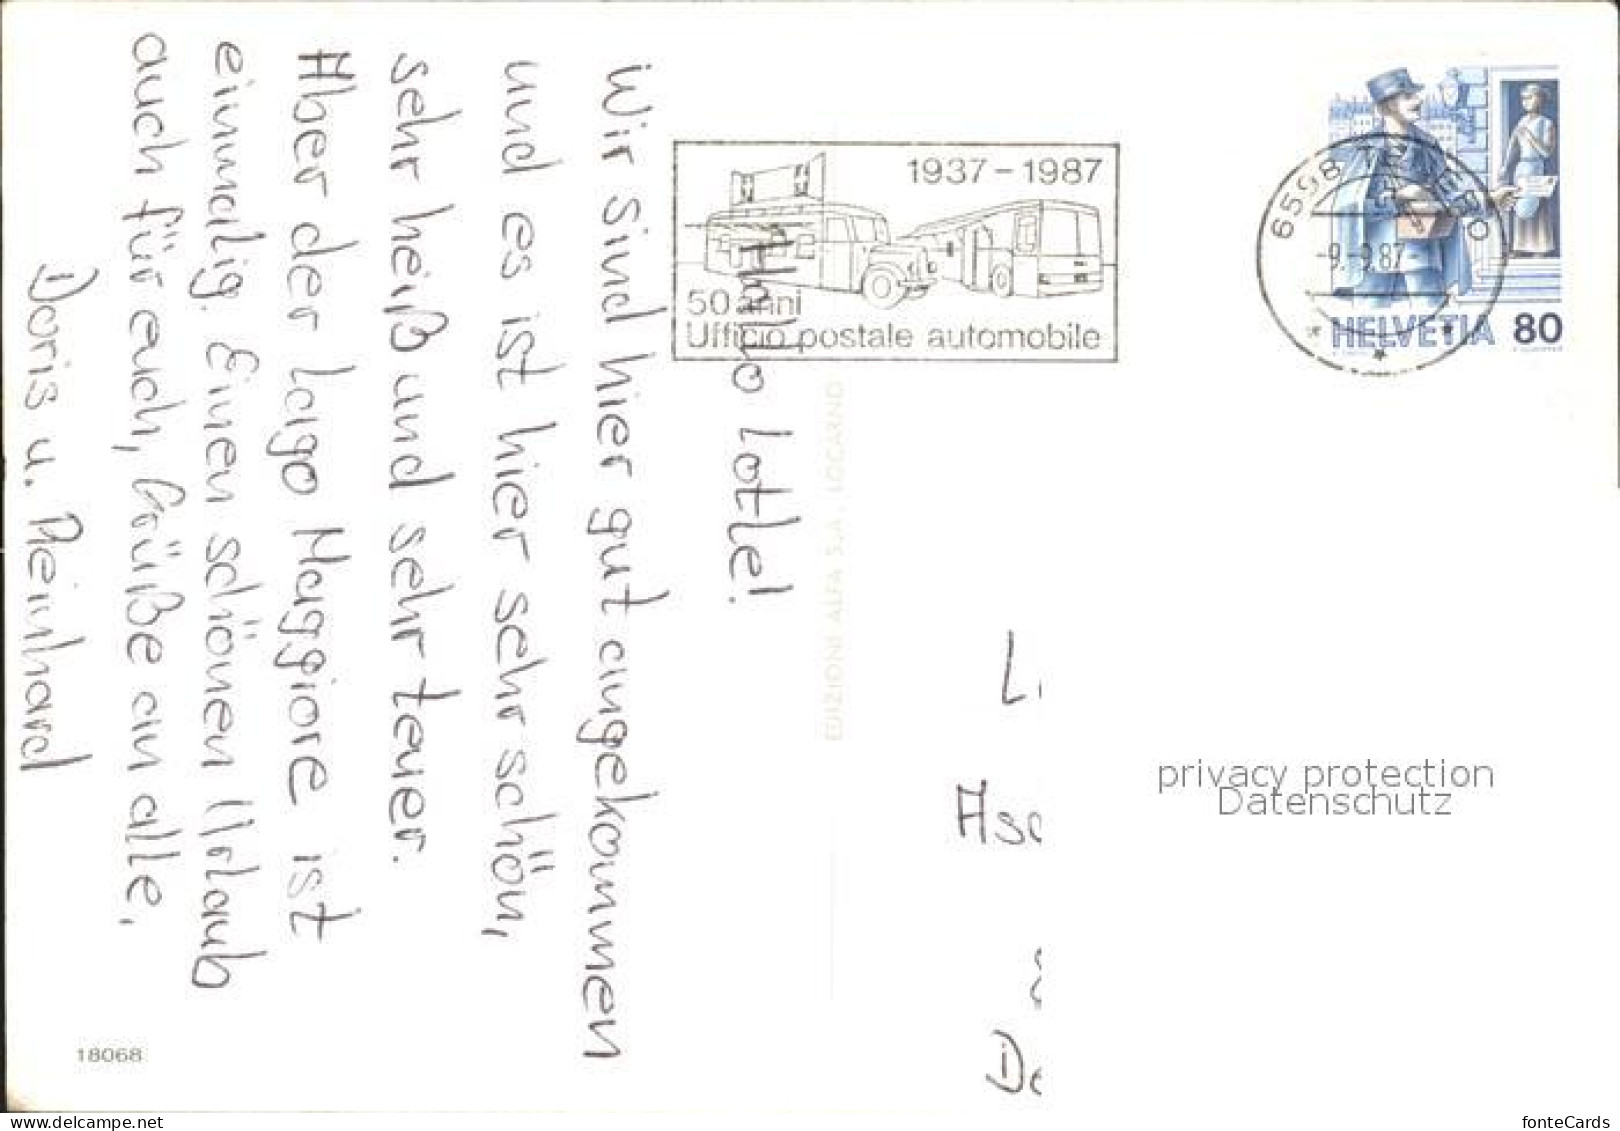 Hallo Lotte!
Wir sind hier gut angekommen
und es ist hier sehr schön,
sehr heiß und sehr teuer.
Aber der Lago Maggiore ist
einmalig. Einen schönen Urlaub
auch für euch, Grüße an alle,
Doris u. Reinhard
18068
EDIZIONI ALFA S.A. LOCARNO
1937-1987
50 anni
Ufficio postale automobile
6598 TENERO
-9.-9.87
HELVETIA 80
privacy protection
Datenschutz
fonteCards
www.delcampe.net